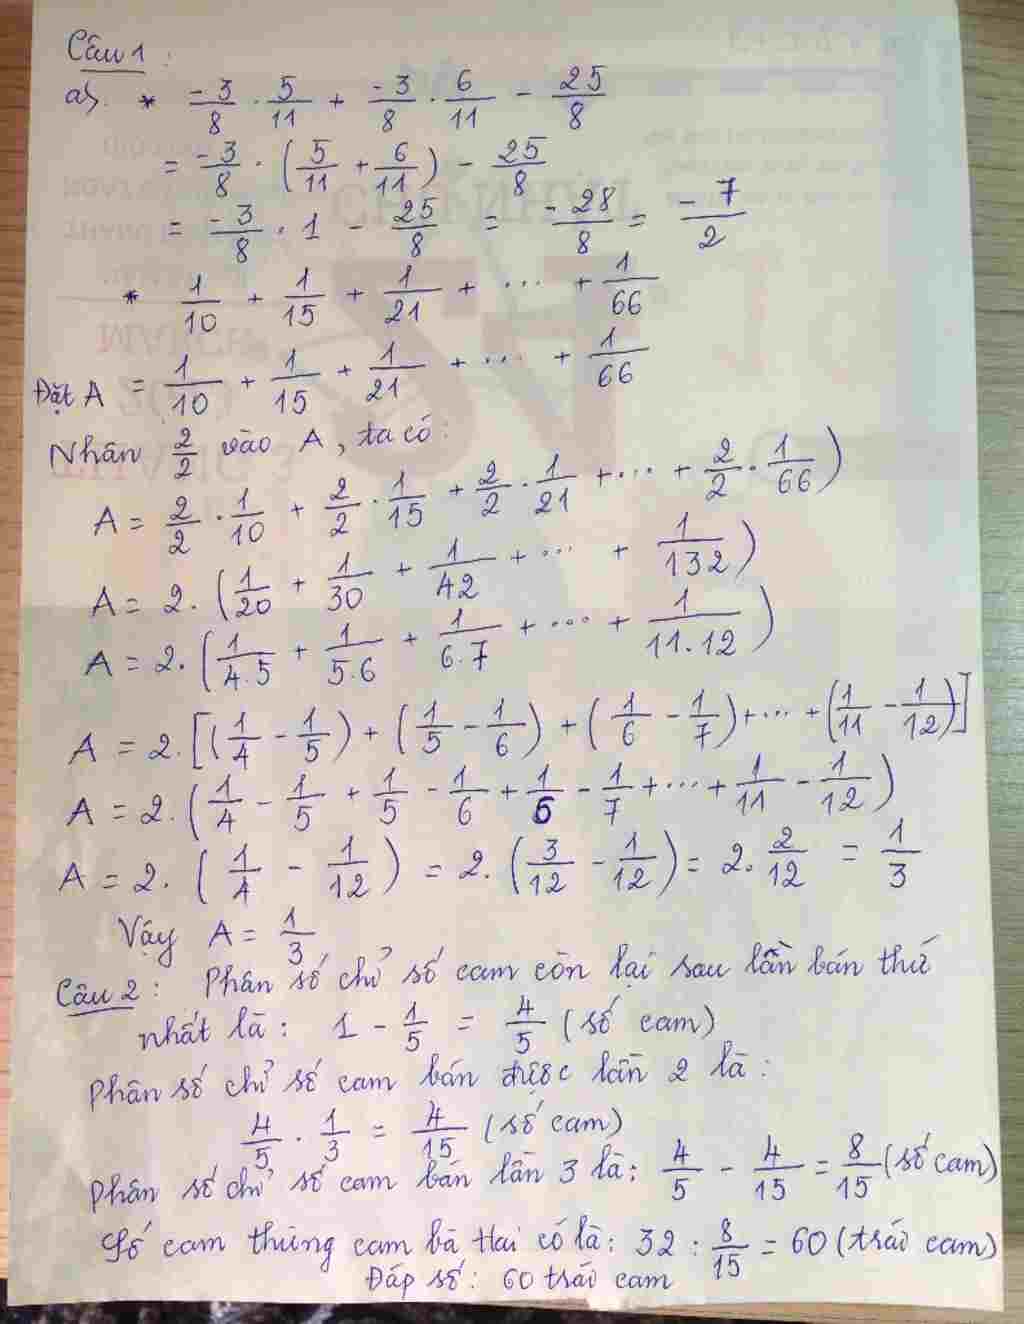 Câu 1:
a). * -3/8 . 5/11 + -3/8 . 6/11 - 25/8
= -3/8 . (5/11 + 6/11) - 25/8
= -3/8 . 1 - 25/8 = -28/8 = -7/2
* 1/10 + 1/15 + 1/21 + ... + 1/66
Đặt A = 1/10 + 1/15 + 1/21 + ... + 1/66
Nhân 2/2 vào A, ta có:
A = 2/2 . 1/10 + 2/2 . 1/15 + 2/2 . 1/21 + ... + 2/2 . 1/66)
A = 2. (1/20 + 1/30 + 1/42 + ... + 1/132)
A = 2. (1/4.5 + 1/5.6 + 1/6.7 + ... + 1/11.12)
A = 2. [(1/4 - 1/5) + (1/5 - 1/6) + (1/6 - 1/7) + ... + (1/11 - 1/12)]
A = 2. (1/4 - 1/5 + 1/5 - 1/6 + 1/6 - 1/7 + ... + 1/11 - 1/12)
A = 2. (1/4 - 1/12) = 2. (3/12 - 1/12) = 2. 2/12 = 1/3
Vậy A = 1/3
Câu 2: Phân số chỉ số cam còn lại sau lần bán thứ
nhất là: 1 - 1/5 = 4/5 (số cam)
Phân số chỉ số cam bán được lần 2 là:
4/5 . 1/3 = 4/15 (số cam)
Phân số chỉ số cam bán lần 3 là: 4/5 - 4/15 = 8/15 (số cam)
Số cam thùng cam bà Hai có là: 32 : 8/15 = 60 (trái cam)
Đáp số: 60 trái cam